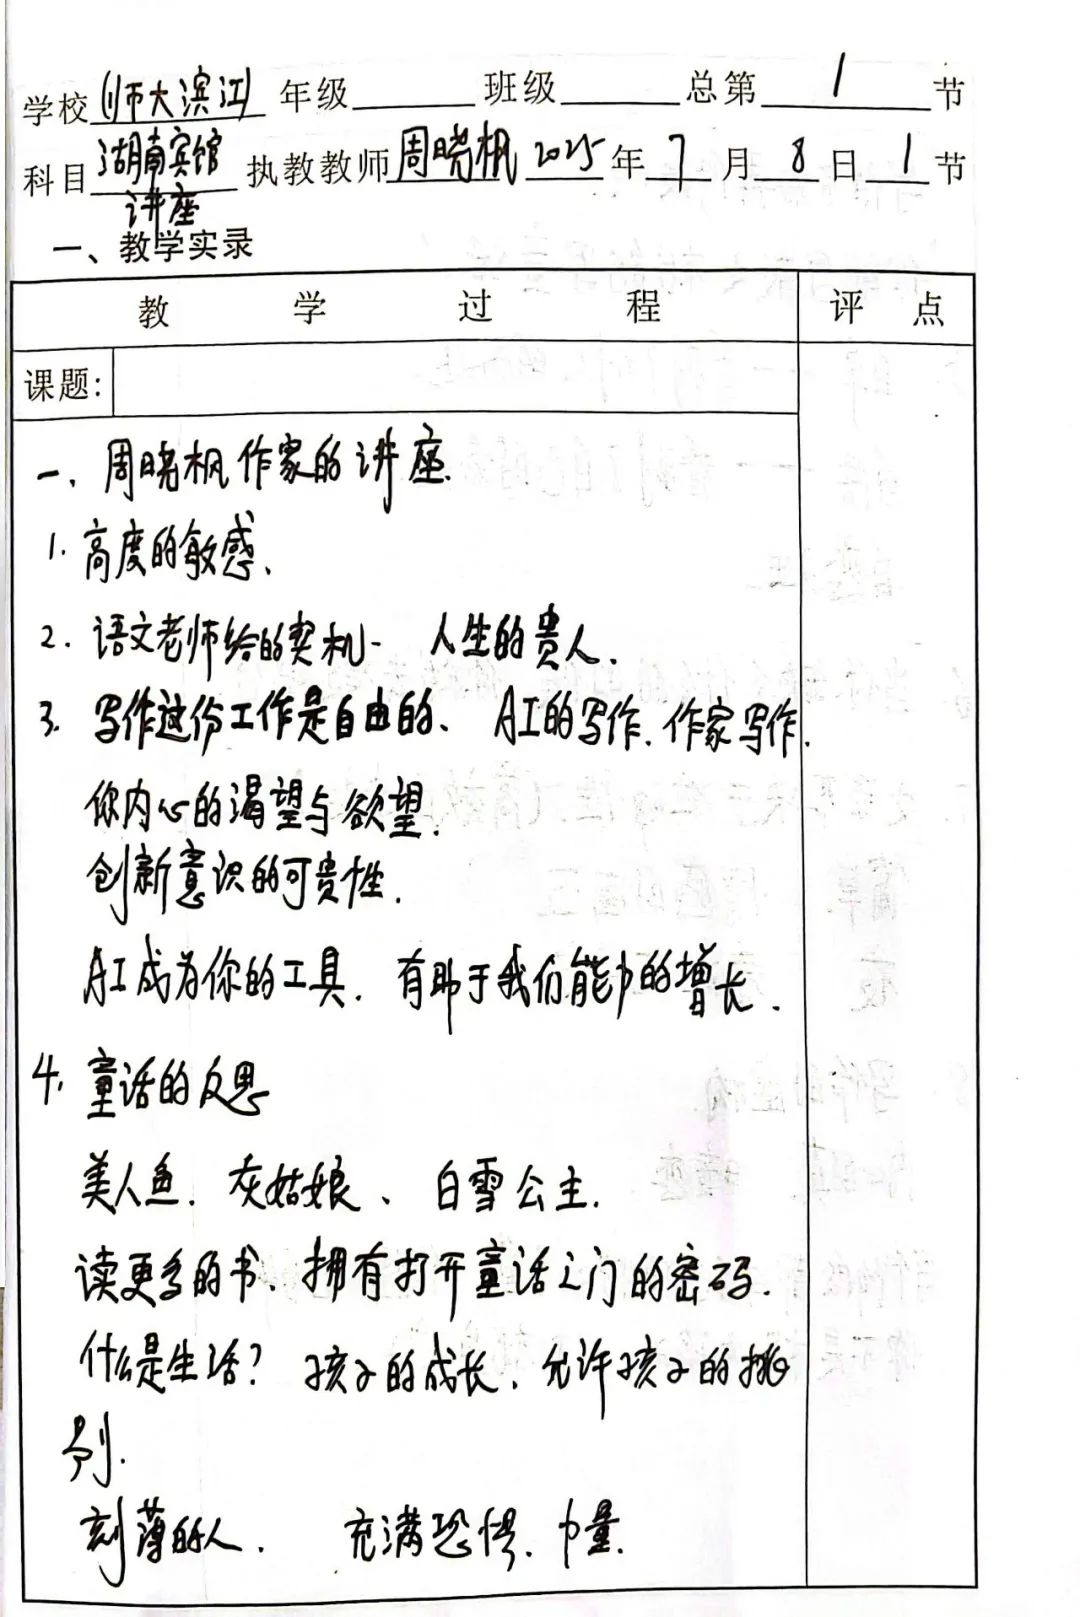 学校 师大滨江 年级 班级 总第 1 节
科目 湖南宾馆 执教教师 周晓枫 2025 年 7 月 8 日 1 节
讲座
一、教学实录
教 学 过 程 评 点
课题:
一、周晓枫作家的讲座.
1. 高度的敏感、
2. 语文老师给的契机- 人生的贵人.
3. 写作这份工作是自由的、 AI的写作.作家写作.
你内心的渴望与欲望.
创新意识的可贵性.
AI成为你的工具. 有助于我们能力的增长.
4. 童话的反思
美人鱼. 灰姑娘、 白雪公主.
读更多的书、拥有打开童话之门的密码.
什么是生活? 孩子的成长.允许孩子的挑
刻薄的人. 充满恐惧.力量.